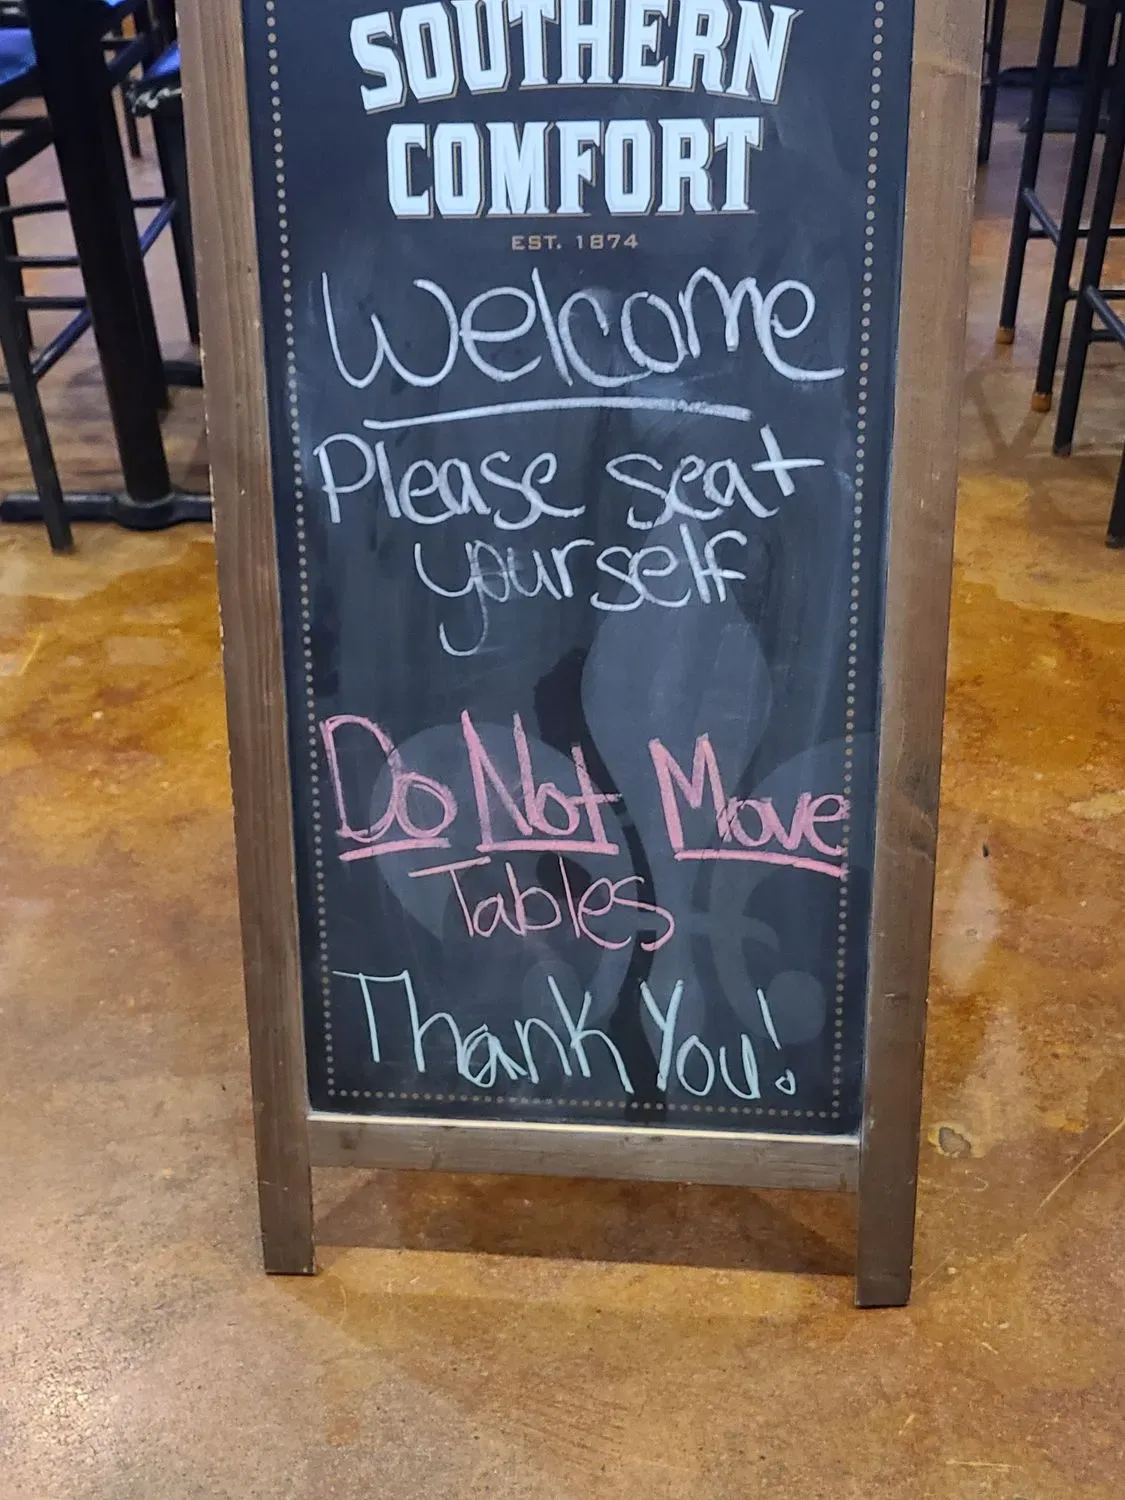 SOUTHERN
COMFORT
EST. 1874
Welcome
Please seat
yourself
Do Not Move
Tables
Thank You!